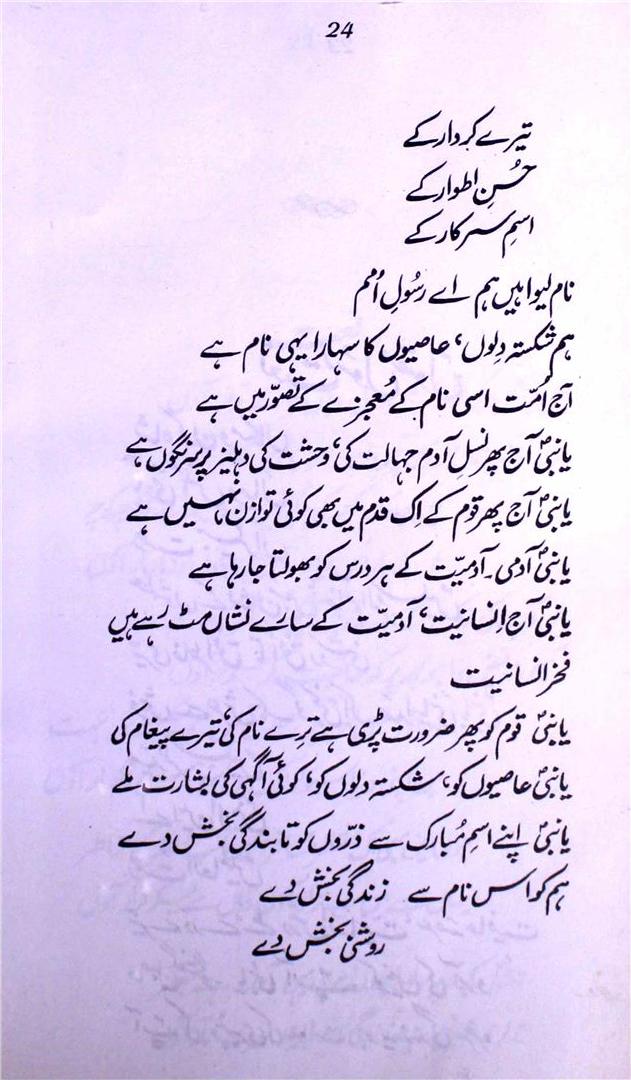 24
تیرے کردار کے
حُسنِ اطوار کے
اسمِ سرکار کے
نام لیوا ہیں ہم اے رسُولِ اُمم
ہم شکستہ دِلوں، عاصیوں کا سہارا یہی نام ہے
آج اُمّت اسی نام کے مُعجزے کے تصوّر میں ہے
یا نبیؐ آج پھر نسلِ آدم جہالت کی، وحشت کی دہلیز پر سرنگوں ہے
یا نبیؐ آج پھر قوم کے اِک قدم میں بھی کوئی توازن نہیں ہے
یا نبیؐ آدمی۔ آدمیّت کے ہر درس کو بھولتا جا رہا ہے
یا نبیؐ آج اِنسانیت، آدمیّت کے سارے نشاں مٹ رہے ہیں
فخرِ انسانیت
یا نبیؐ قوم کو پھر ضرورت پڑی ہے ترے نام کی، تیرے پیغام کی
یا نبیؐ عاصیوں کو، شکستہ دلوں کو، کوئی آگہی کی بشارت ملے
یا نبیؐ اپنے اسمِ مُبارک سے ذرّوں کو تابندگی بخش دے
ہم کو اس نام سے زندگی بخش دے
روشنی بخش دے